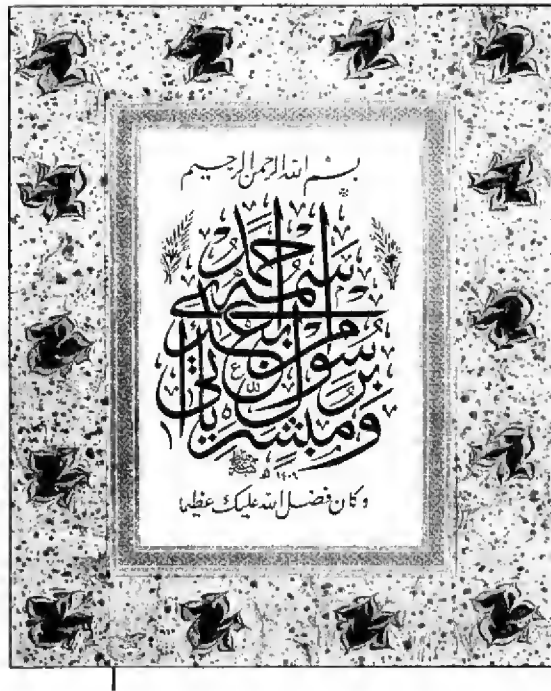 بسم الله الرحمن الرحيم
ومبشرا برسول يأتي من بعدي اسمه أحمد
١٤٠٩ هـ
وكان فضل الله عليك عظيما